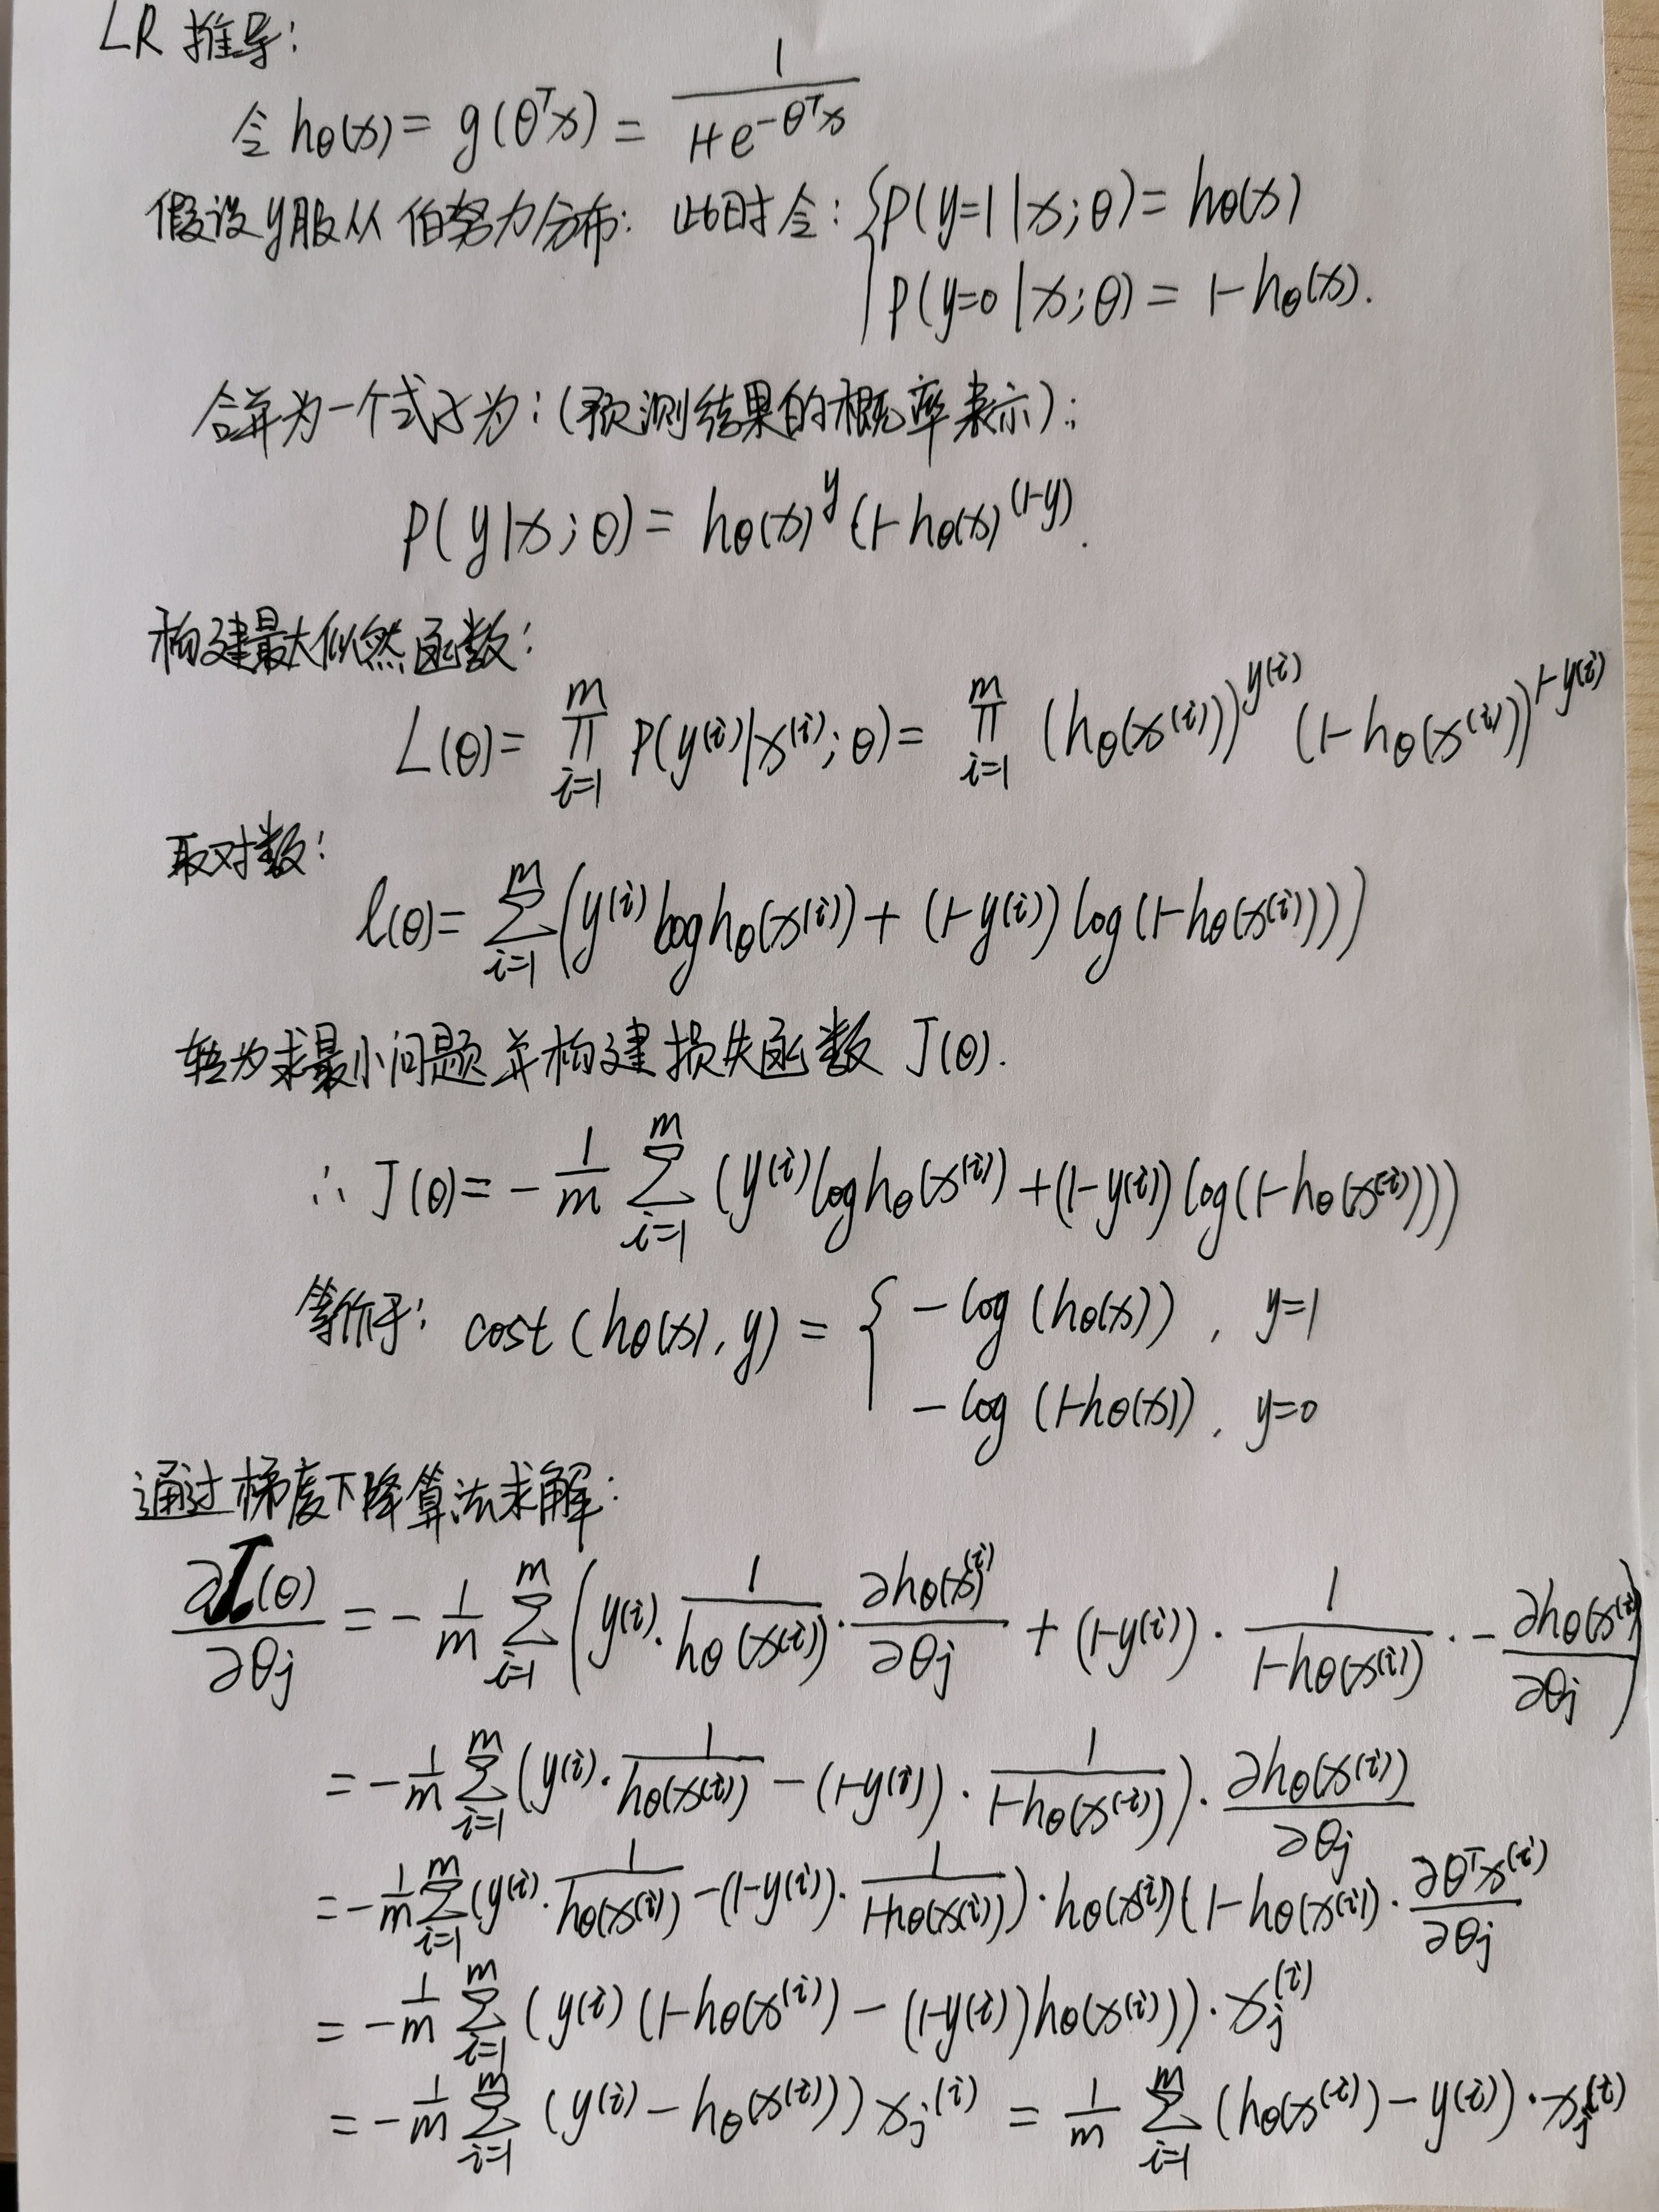 LR 推导:
令 hθ(x) = g(θᵀx) = 1/(1+e^(-θᵀx))
假设y服从伯努力分布: 此时令: { P(y=1|x;θ) = hθ(x)
P(y=0|x;θ) = 1-hθ(x).
合并为一个式子为:(预测结果的概率表示):
P(y|x;θ) = hθ(x)^y (1-hθ(x)^(1-y).
构建最大似然函数:
L(θ) = ∏_{i=1}^{m} P(y^(i)|x^(i);θ) = ∏_{i=1}^{m} (hθ(x^(i)))^{y^(i)} (1-hθ(x^(i)))^{1-y^(i)}
取对数:
l(θ) = ∑_{i=1}^{m} (y^(i) log hθ(x^(i)) + (1-y^(i)) log(1-hθ(x^(i))))
转为求最小问题并构建损失函数 J(θ).
∴ J(θ) = -1/m ∑_{i=1}^{m} (y^(i) log hθ(x^(i)) + (1-y^(i)) log(1-hθ(x^(i))))
等价于: cost(hθ(x), y) = { -log(hθ(x)), y=1
-log(1-hθ(x)), y=0
通过梯度下降算法求解:
∂J(θ)/∂θj = -1/m ∑_{i=1}^{m} (y^(i)·1/hθ(x^(i))·∂hθ(x)^(i)/∂θj + (1-y^(i))·1/(1-hθ(x^(i)))·-∂hθ(x^(i))/∂θj)
= -1/m ∑_{i=1}^{m} (y^(i)·1/hθ(x^(i)) - (1-y^(i))·1/(1-hθ(x^(i))))·∂hθ(x^(i))/∂θj
= -1/m ∑_{i=1}^{m} (y^(i)·1/hθ(x^(i)) - (1-y^(i))·1/(1-hθ(x^(i))))·hθ(x^(i))(1-hθ(x^(i))·∂θᵀx^(i)/∂θj
= -1/m ∑_{i=1}^{m} (y^(i)(1-hθ(x^(i)) - (1-y^(i))hθ(x^(i)))·xj^(i)
= -1/m ∑_{i=1}^{m} (y^(i) - hθ(x^(i)))xj^(i) = 1/m ∑_{i=1}^{m} (hθ(x^(i)) - y^(i))·xj^(i)